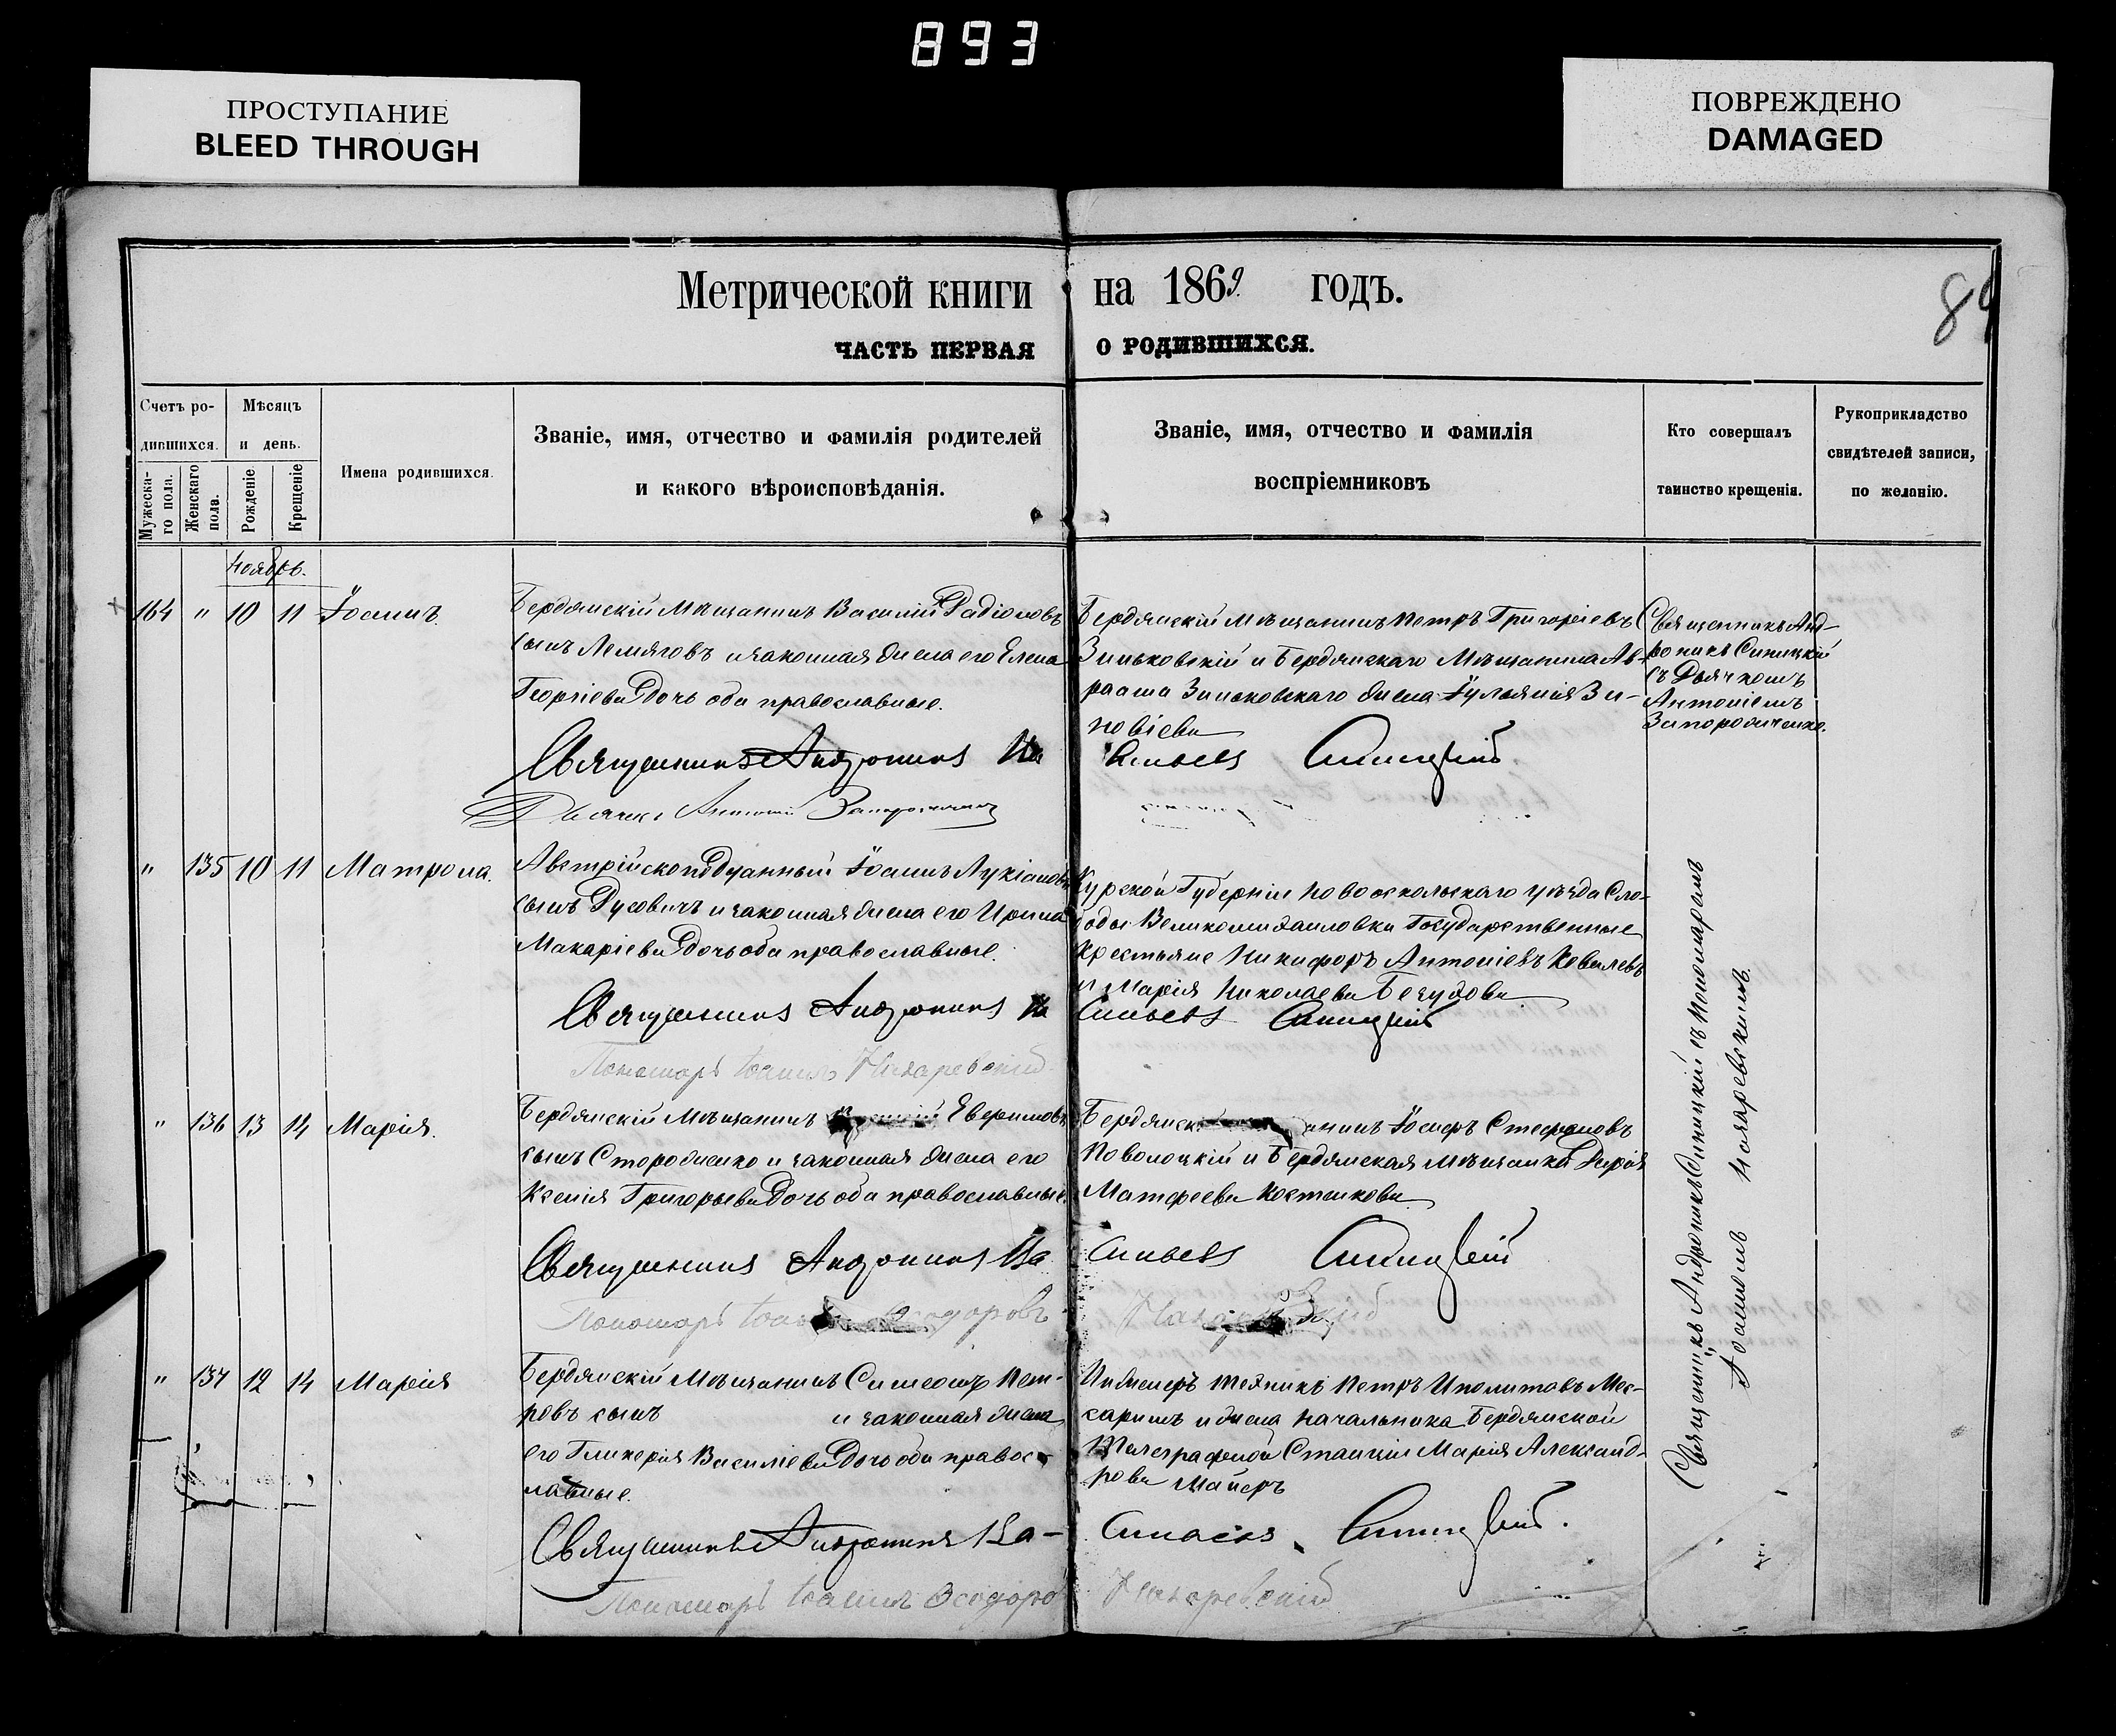 893
ПРОСТУПАНИЕ
BLEED THROUGH
ПОВРЕЖДЕНО
DAMAGED
Метрической книги на 1869 годъ.
89
ЧАСТЬ ПЕРВАЯ О РОДИВШИХСЯ.
Счетъ ро-
дившихся.
Мужеска-
го пола.
Женскаго
пола.
Мѣсяцъ
и день.
Рожденіе
Крещеніе
Имена родившихся.
Званіе, имя, отчество и фамилія родителей
и какого вѣроисповѣданія.
Званіе, имя, отчество и фамилія
воспріемниковъ
Кто совершалъ
таинство крещенія.
Рукоприкладство
свидѣтелей записи,
по желанію.
Ноябрь.
164 " 10 11 Іоаннъ.
Бердянскій Мѣщанинъ Василій Радіоновъ
сынъ Лемяговъ и законная жена его Елена
Георгіева дочь оба православные.
Бердянскій мѣщанинъ Петръ Григоріевъ
Зиньковскій и Бердянскаго Мѣщанина Ав-
раама Зиньковскаго жена Іуліанія Зи-
новіева
Священникъ Анд-
роникъ Синицкій
съ Дьячкомъ
Антоніемъ
Запорожченко.
Священникъ Андроникъ Ва сильевъ Синицкій
Дьячекъ Антоній
" 135 10 11 Матрона.
Австрійскоподданный Іоаннъ Лукіановъ
сынъ Дусовичъ и законная жена его Ирина
Макаріева дочь оба православные.
Курской Губерніи Новооскольскаго уѣзда Сло-
боды Великомихайловки Государственные
Крестьяне Никифоръ Антоніевъ Ковалевъ
и Марія Николаева
Священникъ Андроникъ Ва сильевъ Синицкій
Пономарь Іоаннъ Назаревскій
" 136 13 14 Марія.
Бердянскій Мѣщанинъ Евфимовъ
сынъ Стороженко и законная жена его
Ксенія Григорьева дочь оба православные.
анинъ Іосифъ Стефановъ
Поволоцкій и Бердянская мѣщанка Дарія
Матфеева Костенкова
Священникъ Андроникъ Ва сильевъ Синицкій
Пономарь Ѳеодоровъ Назаревскій
" 137 12 14 Марія
Бердянскій Мѣщанинъ Симеонъ Пет-
ровъ сынъ и законная жена
его Гликерія Василіева дочь оба правос-
лавные.
Инженеръ техникъ Петръ Иполитовъ Мас-
саринъ и жена Начальника Бердянской
Телеграфной Станціи Марія Александ-
рова Майеръ
Священникъ Андроникъ Ва- сильевъ Синицкій.
Пономарь Іоаннъ Ѳеодоро Назаревскій
Священникъ Андроникъ Синицкій съ Пономаремъ
Іоанномъ Назаревскимъ.